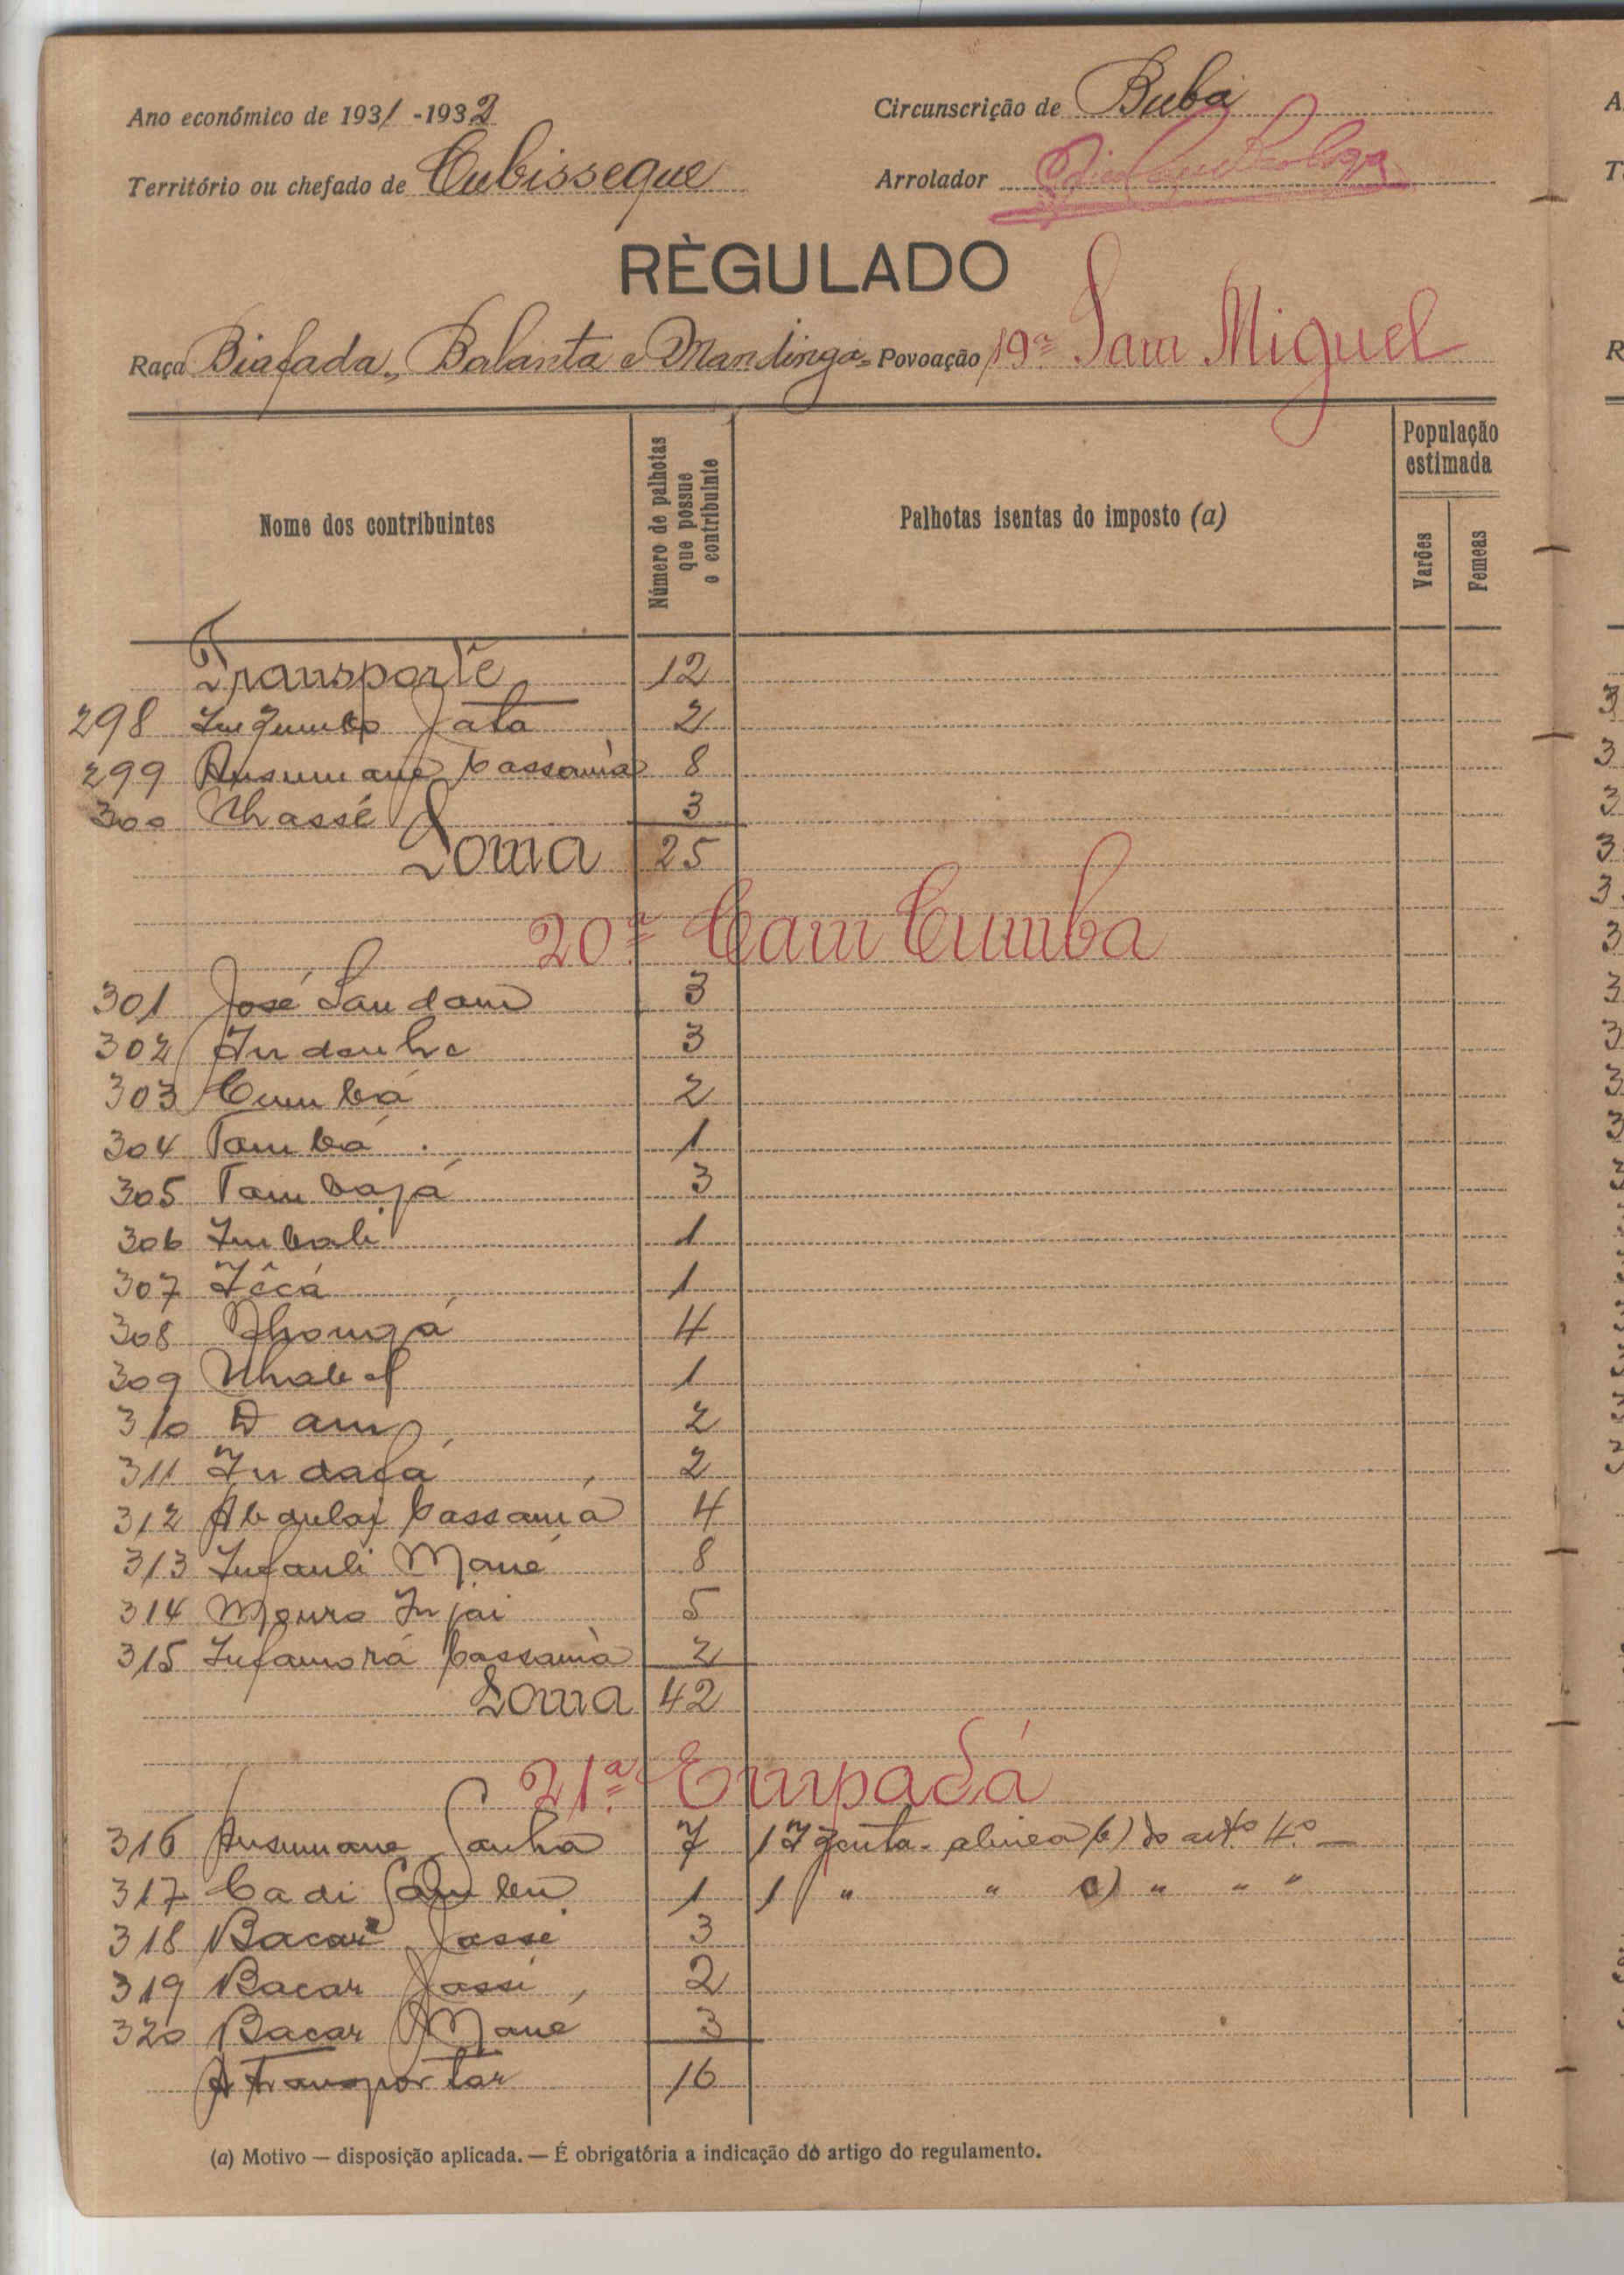 Ano económico de 1931-1932 Circunscrição de Buba
Território ou chefado de Cubisseque Arrolador
RÈGULADO
Raça Biafada, Balanta e Mandinga= Povoação 19ª Sam Miguel
Nome dos contribuintes Número de palhotas que possue o contribuinte Palhotas isentas do imposto (a) População estimada Varões Femeas
Transporte 12
298 Sata 2
299 Ansumane Cassamà 8
300 Nhassé 3
Soma 25
20ª Cam Cumba
301 José Sandam 3
302 3
303 Cumbá 2
304 Tambá 1
305 Tambajá 3
306 Imbali 1
307 Têcá 1
308 Nhongá 4
309 1
310 Dam 2
311 Indafá 2
312 Abdulai Cassamá 4
313 Infanli Mané 8
314 Mouro Injai 5
315 Infamorá Cassamà 2
Soma 42
21ª Empadá
316 Ansumane Sanhá 7 1 Izenta- alinea b) do artº 4º
317 Cadi Cambu 1 1 " " c) " " "
318 Bacar Jassi 3
319 Bacar Jassi 2
320 Bacar Mané 3
A transportar 16
(a) Motivo — disposição aplicada. — É obrigatória a indicação do artigo do regulamento.